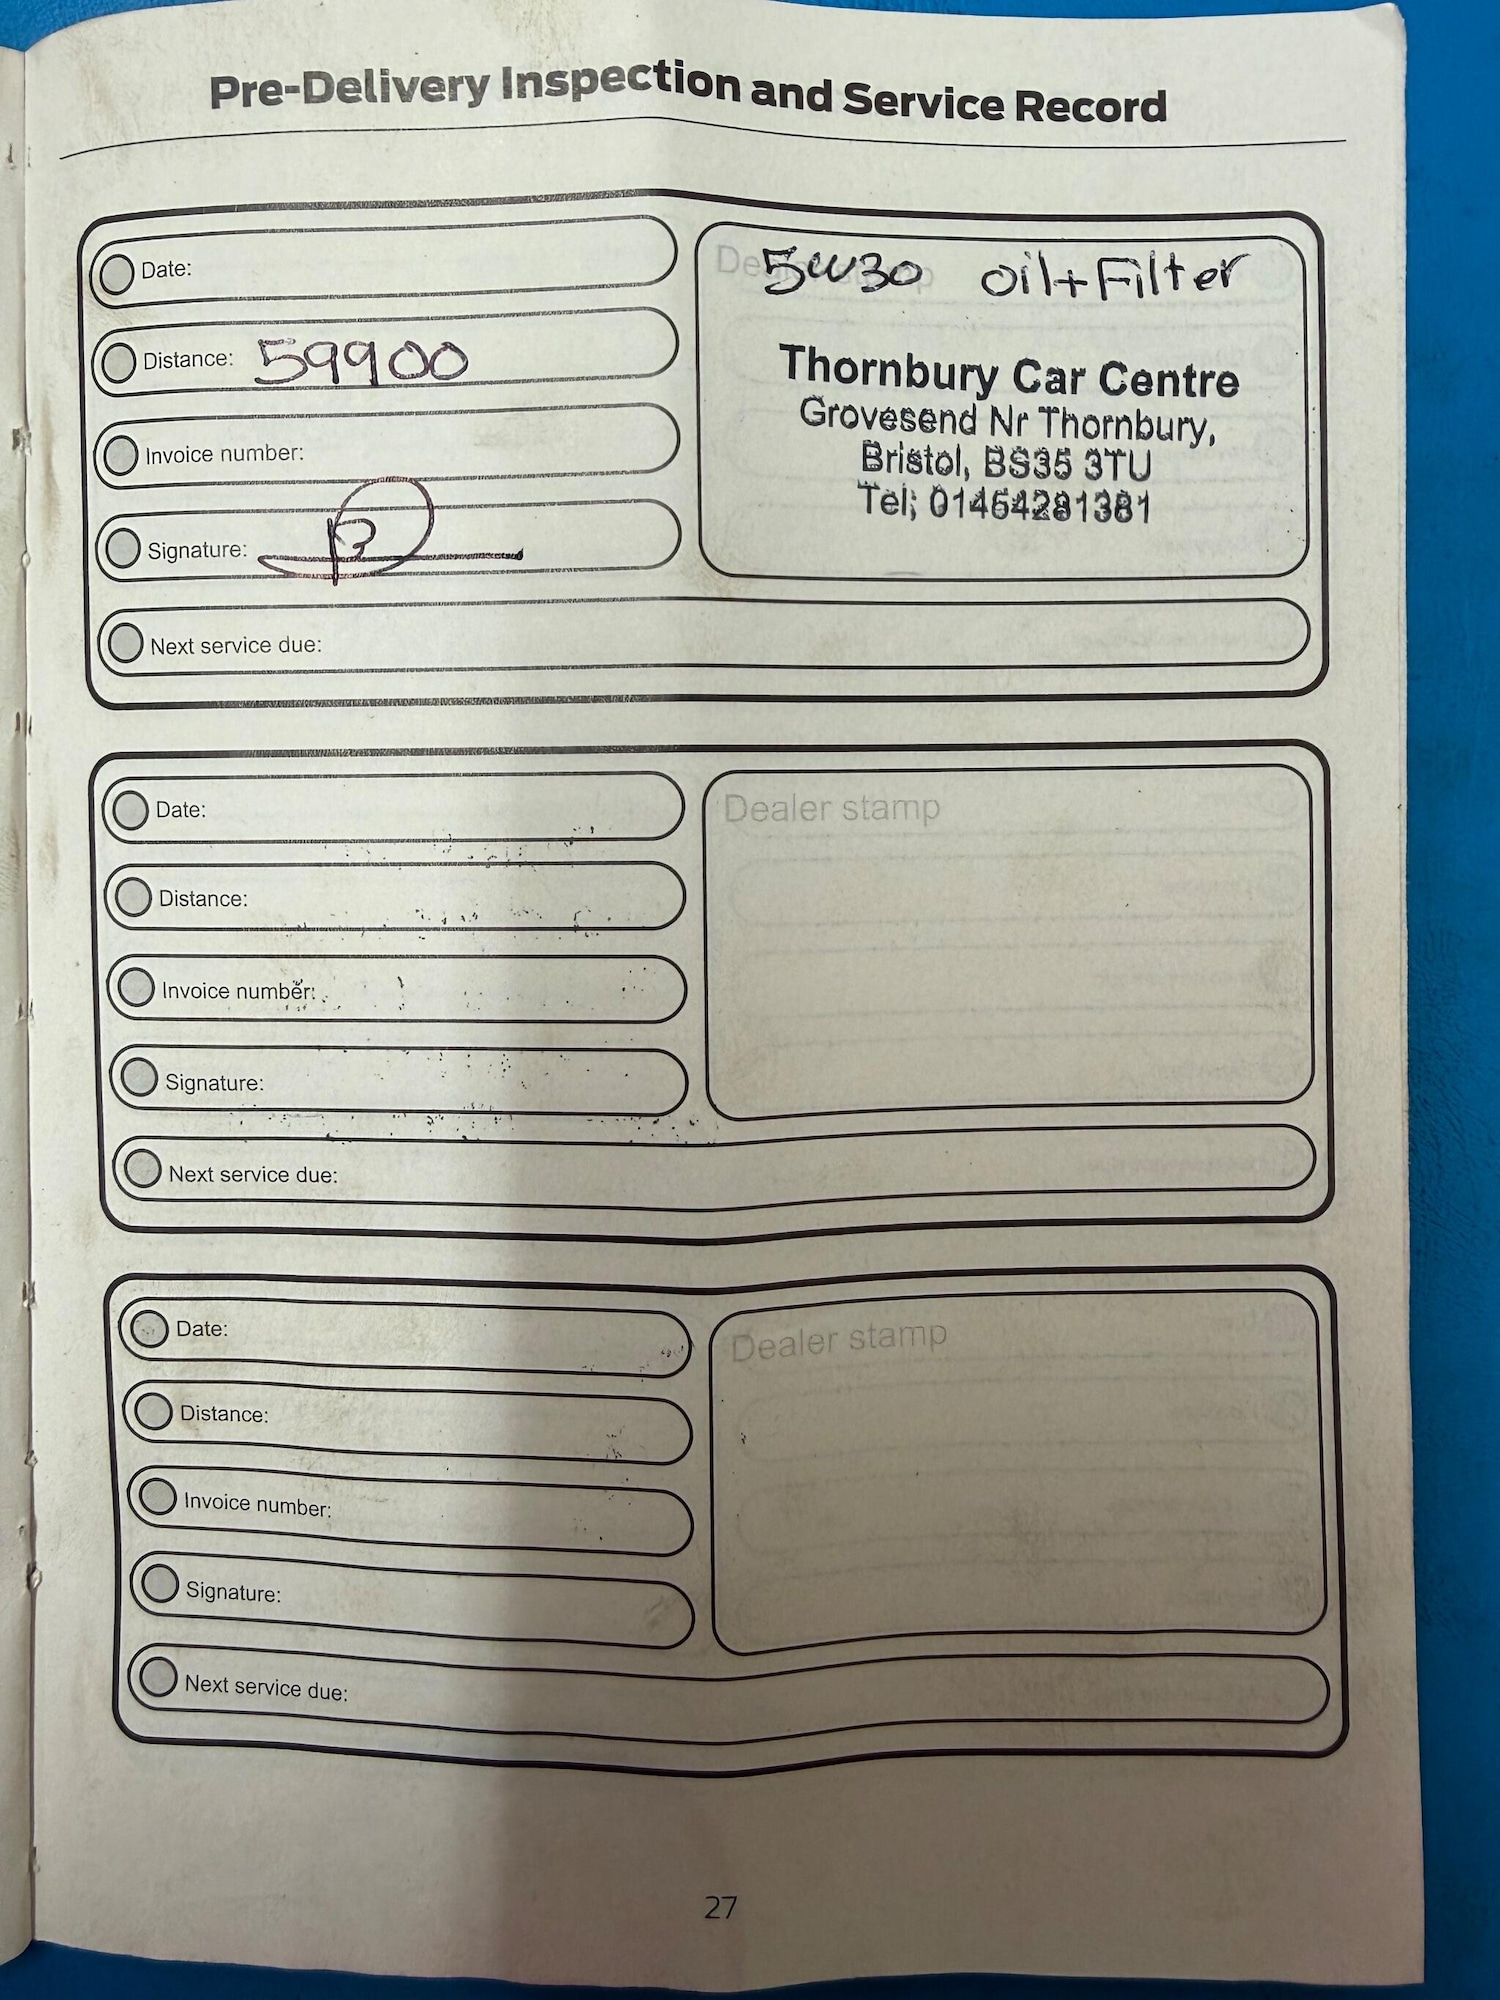 Pre-Delivery Inspection and Service Record
Date:
Distance: 59900
Invoice number:
Signature:
Next service due:
Dealer stamp
5W30 oil+Filter
Thornbury Car Centre
Grovesend Nr Thornbury,
Bristol, BS35 3TU
Tel; 01454281381
Date:
Distance:
Invoice number:
Signature:
Next service due:
Dealer stamp
Date:
Distance:
Invoice number:
Signature:
Next service due:
Dealer stamp
27